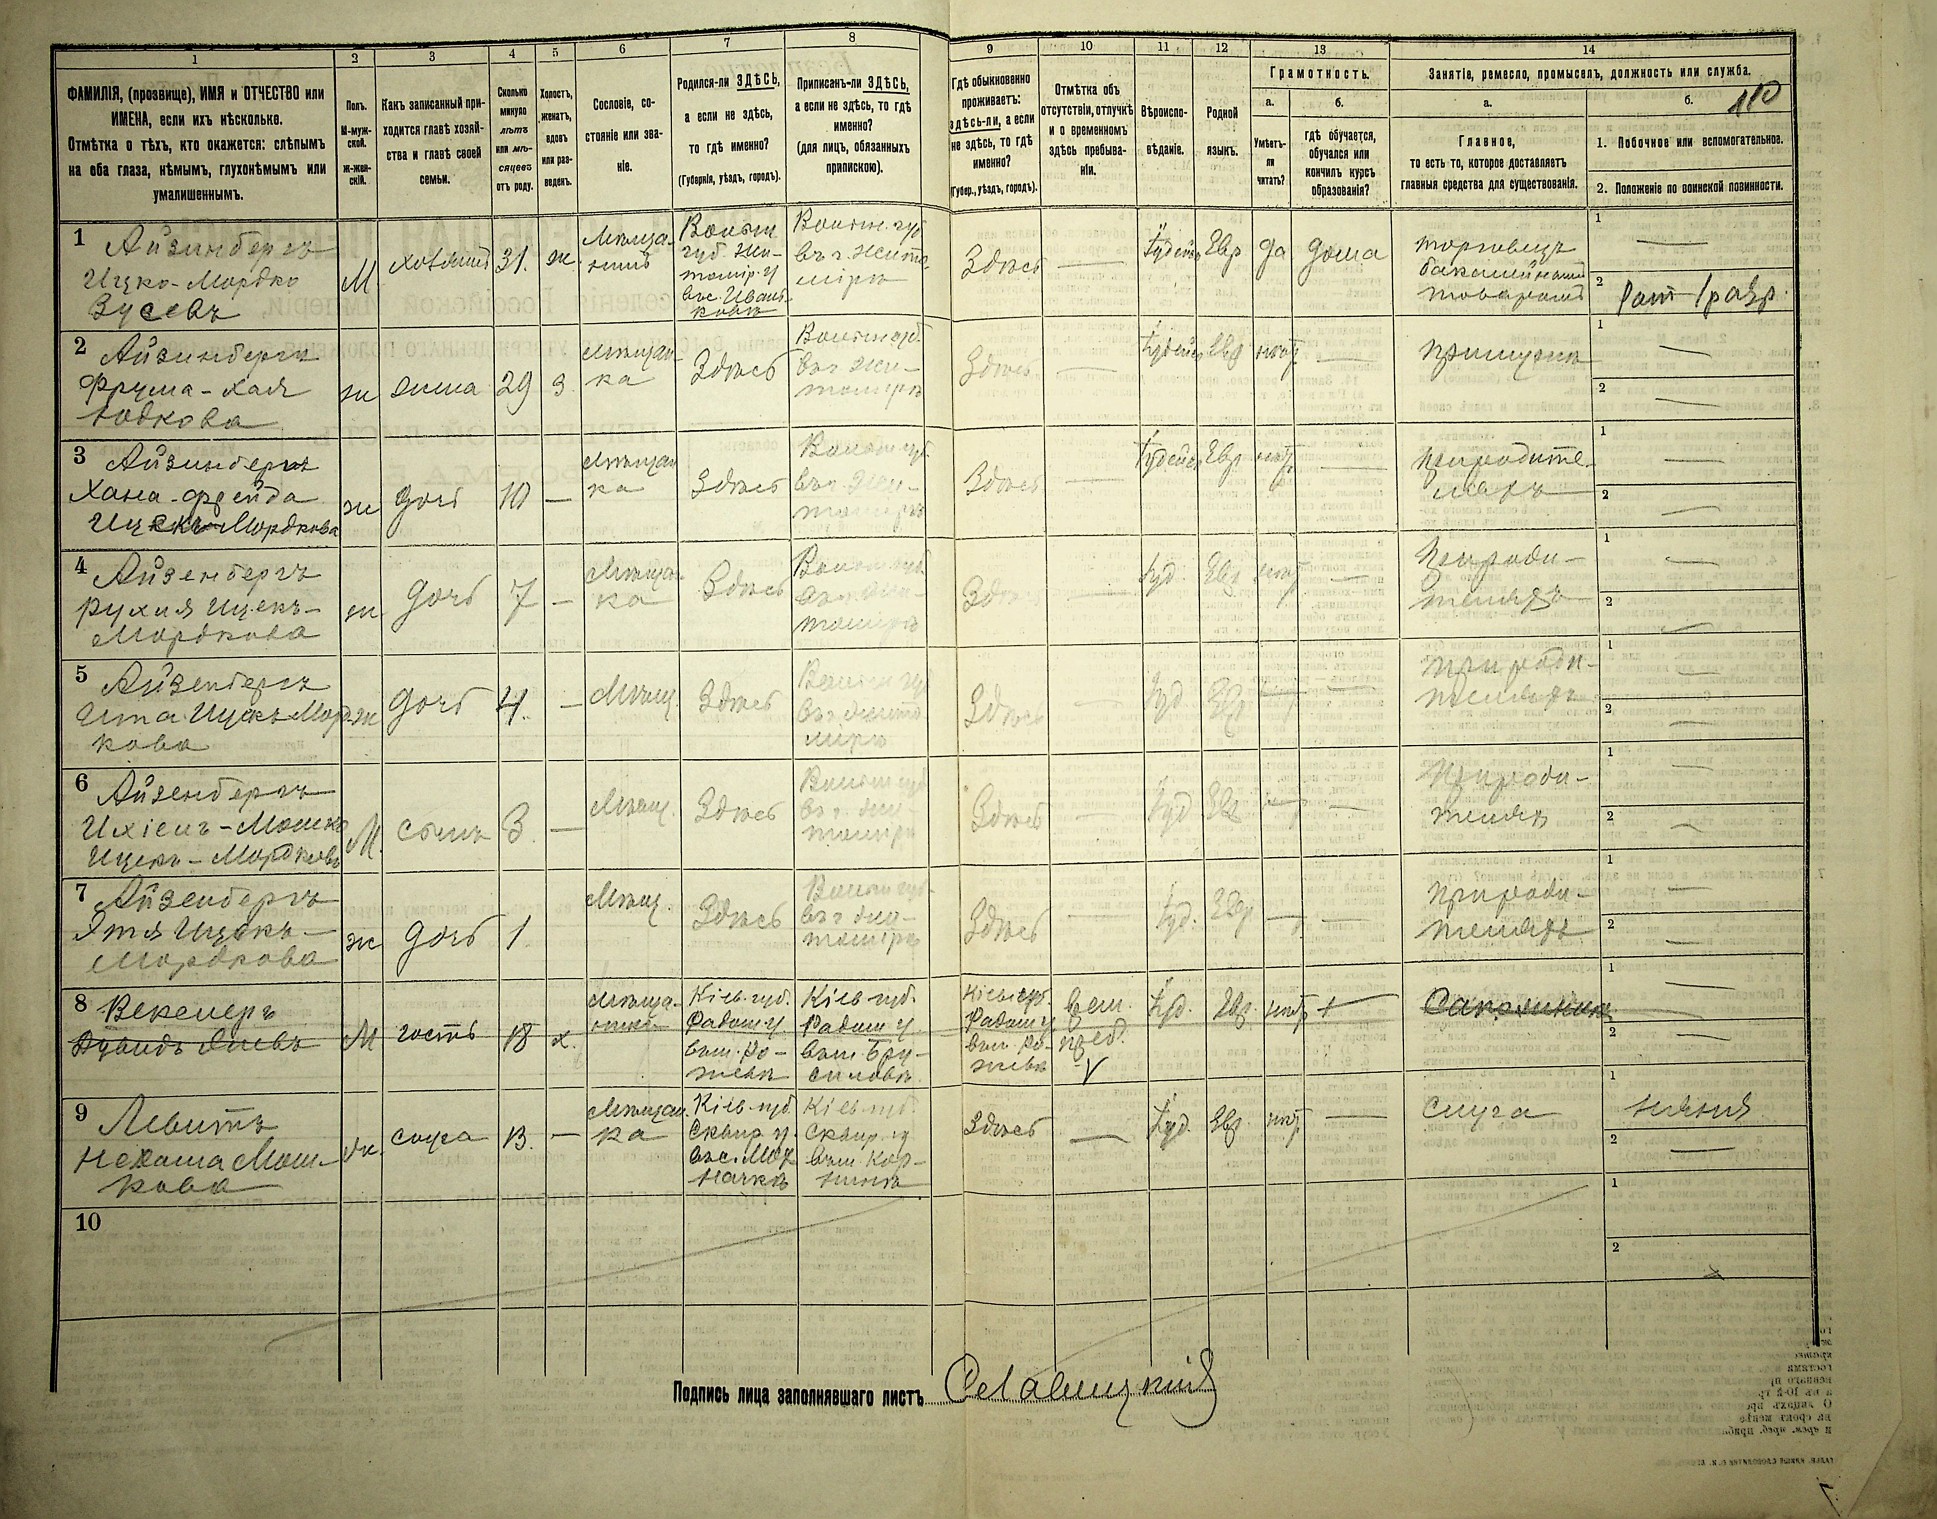 1
2
3
4
5
6
7
8
9
10
11
12
13
14
ФАМИЛІЯ, (прозвище), ИМЯ и ОТЧЕСТВО или
ИМЕНА, если ихъ нѣсколько.
Отмѣтка о тѣхъ, кто окажется: слѣпымъ
на оба глаза, нѣмымъ, глухонѣмымъ или
умалишеннымъ.
Полъ.
М-муж-
ской.
Ж-жен-
скій.
Какъ записанный при-
ходится главѣ хозяй-
ства и главѣ своей
семьи.
Сколько
минуло
лѣтъ
или мѣ-
сяцевъ
отъ роду.
Холостъ,
женатъ,
вдовъ
или раз-
веденъ.
Сословіе, со-
стояніе или зва-
ніе.
Родился-ли ЗДѢСЬ,
а если не здѣсь,
то гдѣ именно?
(Губернія, уѣздъ, городъ).
Приписанъ-ли ЗДѢСЬ,
а если не здѣсь, то гдѣ
именно?
(для лицъ, обязанныхъ
припискою).
Гдѣ обыкновенно
проживаетъ:
здѣсь-ли, а если
не здѣсь, то гдѣ
именно?
(Губер., уѣздъ, городъ).
Отмѣтка объ
отсутствіи, отлучкѣ
и о временномъ
здѣсь пребыва-
ніи.
Вѣроиспо-
вѣданіе.
Родной
языкъ.
Грамотность.
а.
Умѣетъ-
ли
читать?
б.
гдѣ обучается,
обучался или
кончилъ курсъ
образованія?
Занятіе, ремесло, промыселъ, должность или служба.
а.
Главное,
то есть то, которое доставляетъ
главныя средства для существованія.
б.
110
1. Побочное или вспомогательное.
2. Положеніе по воинской повинности.
1
Айзинбергъ
Ицко-Мордко
Зусевъ
М.
хозяинъ
31.
ж.
Мѣща-
нинъ
Волын
губ. Жи-
томір. у
въ с. Иван-
ковѣ
Волын. губ
въ г. Жито-
мірѣ
Здѣсь
—
Іудейск
Евр
да
дома
торговецъ
бакалейными
товарами
1
—
2
Рат 1 разр.
2
Айзинбергъ
Фрума-Хая
Юдкова
ж
жена
29
з.
Мѣщан-
ка
Здѣсь
Волын губ.
въ г Жи-
томірѣ
Здѣсь
—
Іудейск
Евр
нѣтъ
—
при мужѣ
1
—
2
—
3
Айзинбергъ
Хана-Фрейда
Ицекъ-Мордкова
ж
дочь
10
—
Мѣщан
ка
Здѣсь
Волын губ
въ г. Жи-
томірѣ
Здѣсь
—
Іудейск
Евр
нѣтъ
—
при родите-
ляхъ
1
—
2
—
4
Айзенбергъ
Рухля Ицекъ-
Мордкова
ж
дочь
7
—
Мѣщан
ка
Здѣсь
Волын губ.
въ г. Жи-
томірѣ
Здѣсь
—
Іуд.
Евр
нѣтъ
—
при роди-
теляхъ
1
—
2
—
5
Айзенбергъ
Ита Ицекъ Морд-
кова
ж
дочь
4.
—
Мѣщ.
Здѣсь
Волын губ
въ г Жито
мірѣ
Здѣсь
—
Іуд.
Евр
—
—
при роди-
теляхъ
1
—
2
—
6
Айзенбергъ
Ихіель-Мошко
Ицекъ-Мордковъ
М.
сынъ
3.
—
Мѣщ.
Здѣсь
Волын губ
въ г Жи
томірѣ
Здѣсь
—
Іуд
Евр
—
—
при роди-
теляхъ
1
—
2
—
7
Айзенбергъ
Этя Ицекъ-
Мордкова
ж
дочь
1.
Мѣщ.
Здѣсь
Волын губ.
въ г Жи-
томірѣ
Здѣсь
—
Іуд.
Евр
—
—
при роди-
теляхъ
1
—
2
—
8
Векслеръ
М
гость
18
х.
Мѣща-
нинъ
Кіев. губ.
Радом у.
въ м. Ро-
жевѣ
Кіев губ.
Радом у
въ м. Бру-
силовѣ
Кіев губ.
Радом у
въ м. Ро-
жевѣ
врем.
преб.
V
Іуд.
Евр.
нѣтъ
—
1
—
2
—
9
Левитъ
Нехама Мош-
кова
ж.
слуга
13.
—
Мѣщан.
ка
Кіев. губ.
Сквир. у.
въ с. Мох
начкѣ
Кіев. губ.
Сквир. у
въ м Кор-
нинѣ
Здѣсь
—
Іуд.
Евр.
нѣтъ
—
слуга
1
няня
2
—
10
1
2
Подпись лица заполнявшаго листъ